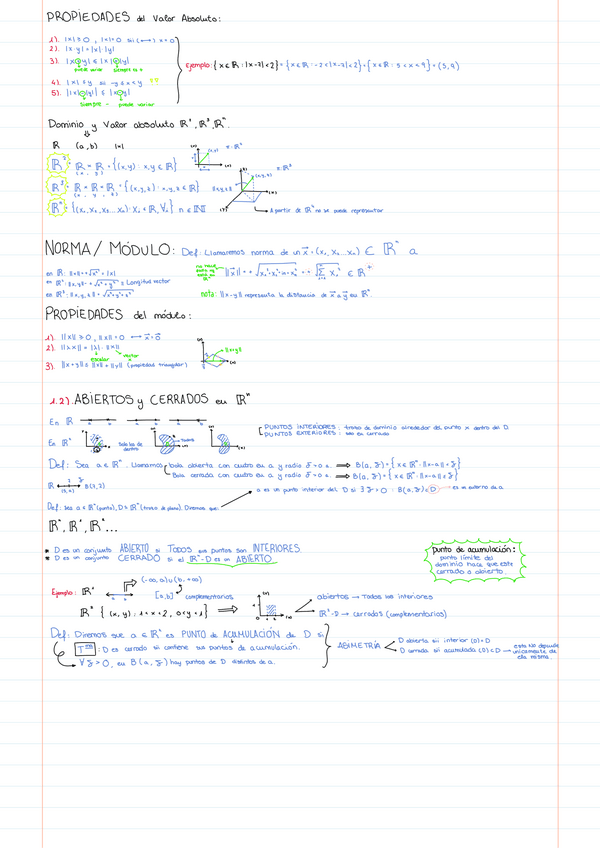 PROPIEDADES del Valor Absoluto:
1). |x| ≥ 0 , |x| = 0 sii (⟷) x = 0
2). |x·y| = |x|·|y|
3). |x⊕y| ≤ |x|⊕|y|
puede variar siempre es +
Ejemplo: {x ∈ ℝ : |x-7| < 2} = {x ∈ ℝ : -2 < x-7 < 2} = {x ∈ ℝ : 5 < x < 9} = (5, 9)
4). |x| ≤ y sii -y ≤ x ≤ y
5). ||x|⊖|y|| ≤ |x⊖y|
siempre - puede variar
Dominio y Valor absoluto ℝ², ℝ³, ℝⁿ.
ℝ (a, b) |x|
ℝ² = ℝ × ℝ = {(x, y) : x, y ∈ ℝ}
ℝ³ = ℝ × ℝ × ℝ = {(x, y, z) : x, y, z ∈ ℝ}
ℝⁿ = {(x₁, x₂, x₃... xₙ) : xᵢ ∈ ℝ, ∀ᵢ} n ∈ ℕ
A partir de ℝ⁴ no se puede representar
NORMA / MÓDULO: Def: Llamaremos norma de un x⃗ = (x₁, x₂... xₙ) ⊂ ℝⁿ a
en ℝ: ||x|| = +√x² = |x|
en ℝ²: ||x, y|| = +√x² + y² = Longitud vector
en ℝ³: ||x, y, z|| = √x² + y² + z²
||x⃗|| = +√x₁² + x₂² + ... xₙ² = +√Σ xᵢ² ∈ ℝ⁺
nota: ||x-y|| representa la distancia de x⃗ a y⃗ en ℝⁿ.
PROPIEDADES del módulo:
1). ||x|| ≥ 0, ||x|| = 0 ⟷ x⃗ = 0⃗
2). ||λx|| = |λ|·||x||
escalar vector
3). ||x + y|| ≤ ||x|| + ||y|| (propiedad triangular)
||x+y||
1.2). ABIERTOS y CERRADOS en ℝⁿ
En ℝ
PUNTOS INTERIORES: trozo de dominio alrededor del punto x dentro del D
PUNTOS EXTERIORES:
En ℝⁿ
Solo los de dentro
Todos
Def: Sea a ∈ ℝⁿ. Llamamos bola abierta con centro en a y radio δ > 0 a ⟹ B(a, δ) = {x ∈ ℝⁿ : ||x-a|| < δ}
Bola cerrada con centro en a y radio δ > 0 a ⟹ B(a, δ) = {x ∈ ℝⁿ : ||x-a|| ≤ δ}
a es un punto interior del D si ∃ δ > 0 : B(a, δ) ⊂ D
Def: Sea a ∈ ℝⁿ (punto), D ⊂ ℝⁿ (trozo de plano). Diremos que:
* D es un conjunto ABIERTO si TODOS sus puntos son INTERIORES.
* D es un conjunto CERRADO si el ℝⁿ-D es un ABIERTO.
punto de acumulación:
punto límite del
dominio hace que este
cerrado o abierto.
(-∞, a) ∪ (b, +∞)
Ejemplo: ℝ¹ [a, b] complementarios
ℝ² {(x, y) : 1 < x < 2, 0 < y < 1} ⟹
abiertos → Todos los interiores
ℝ²-D → cerrados (complementarios)
Def: Diremos que a ∈ ℝⁿ es PUNTO de ACUMULACIÓN de D si
Tᵐᵃ : D es cerrado sii contiene sus puntos de acumulación.
∀ δ > 0, en B(a, δ) hay puntos de D distintos de a.
ASIMETRÍA
D abierta sii interior (D) = D
D cerrada sii acumulada (D) ⊂ D → esto NO depende
unicamente de
ella misma.